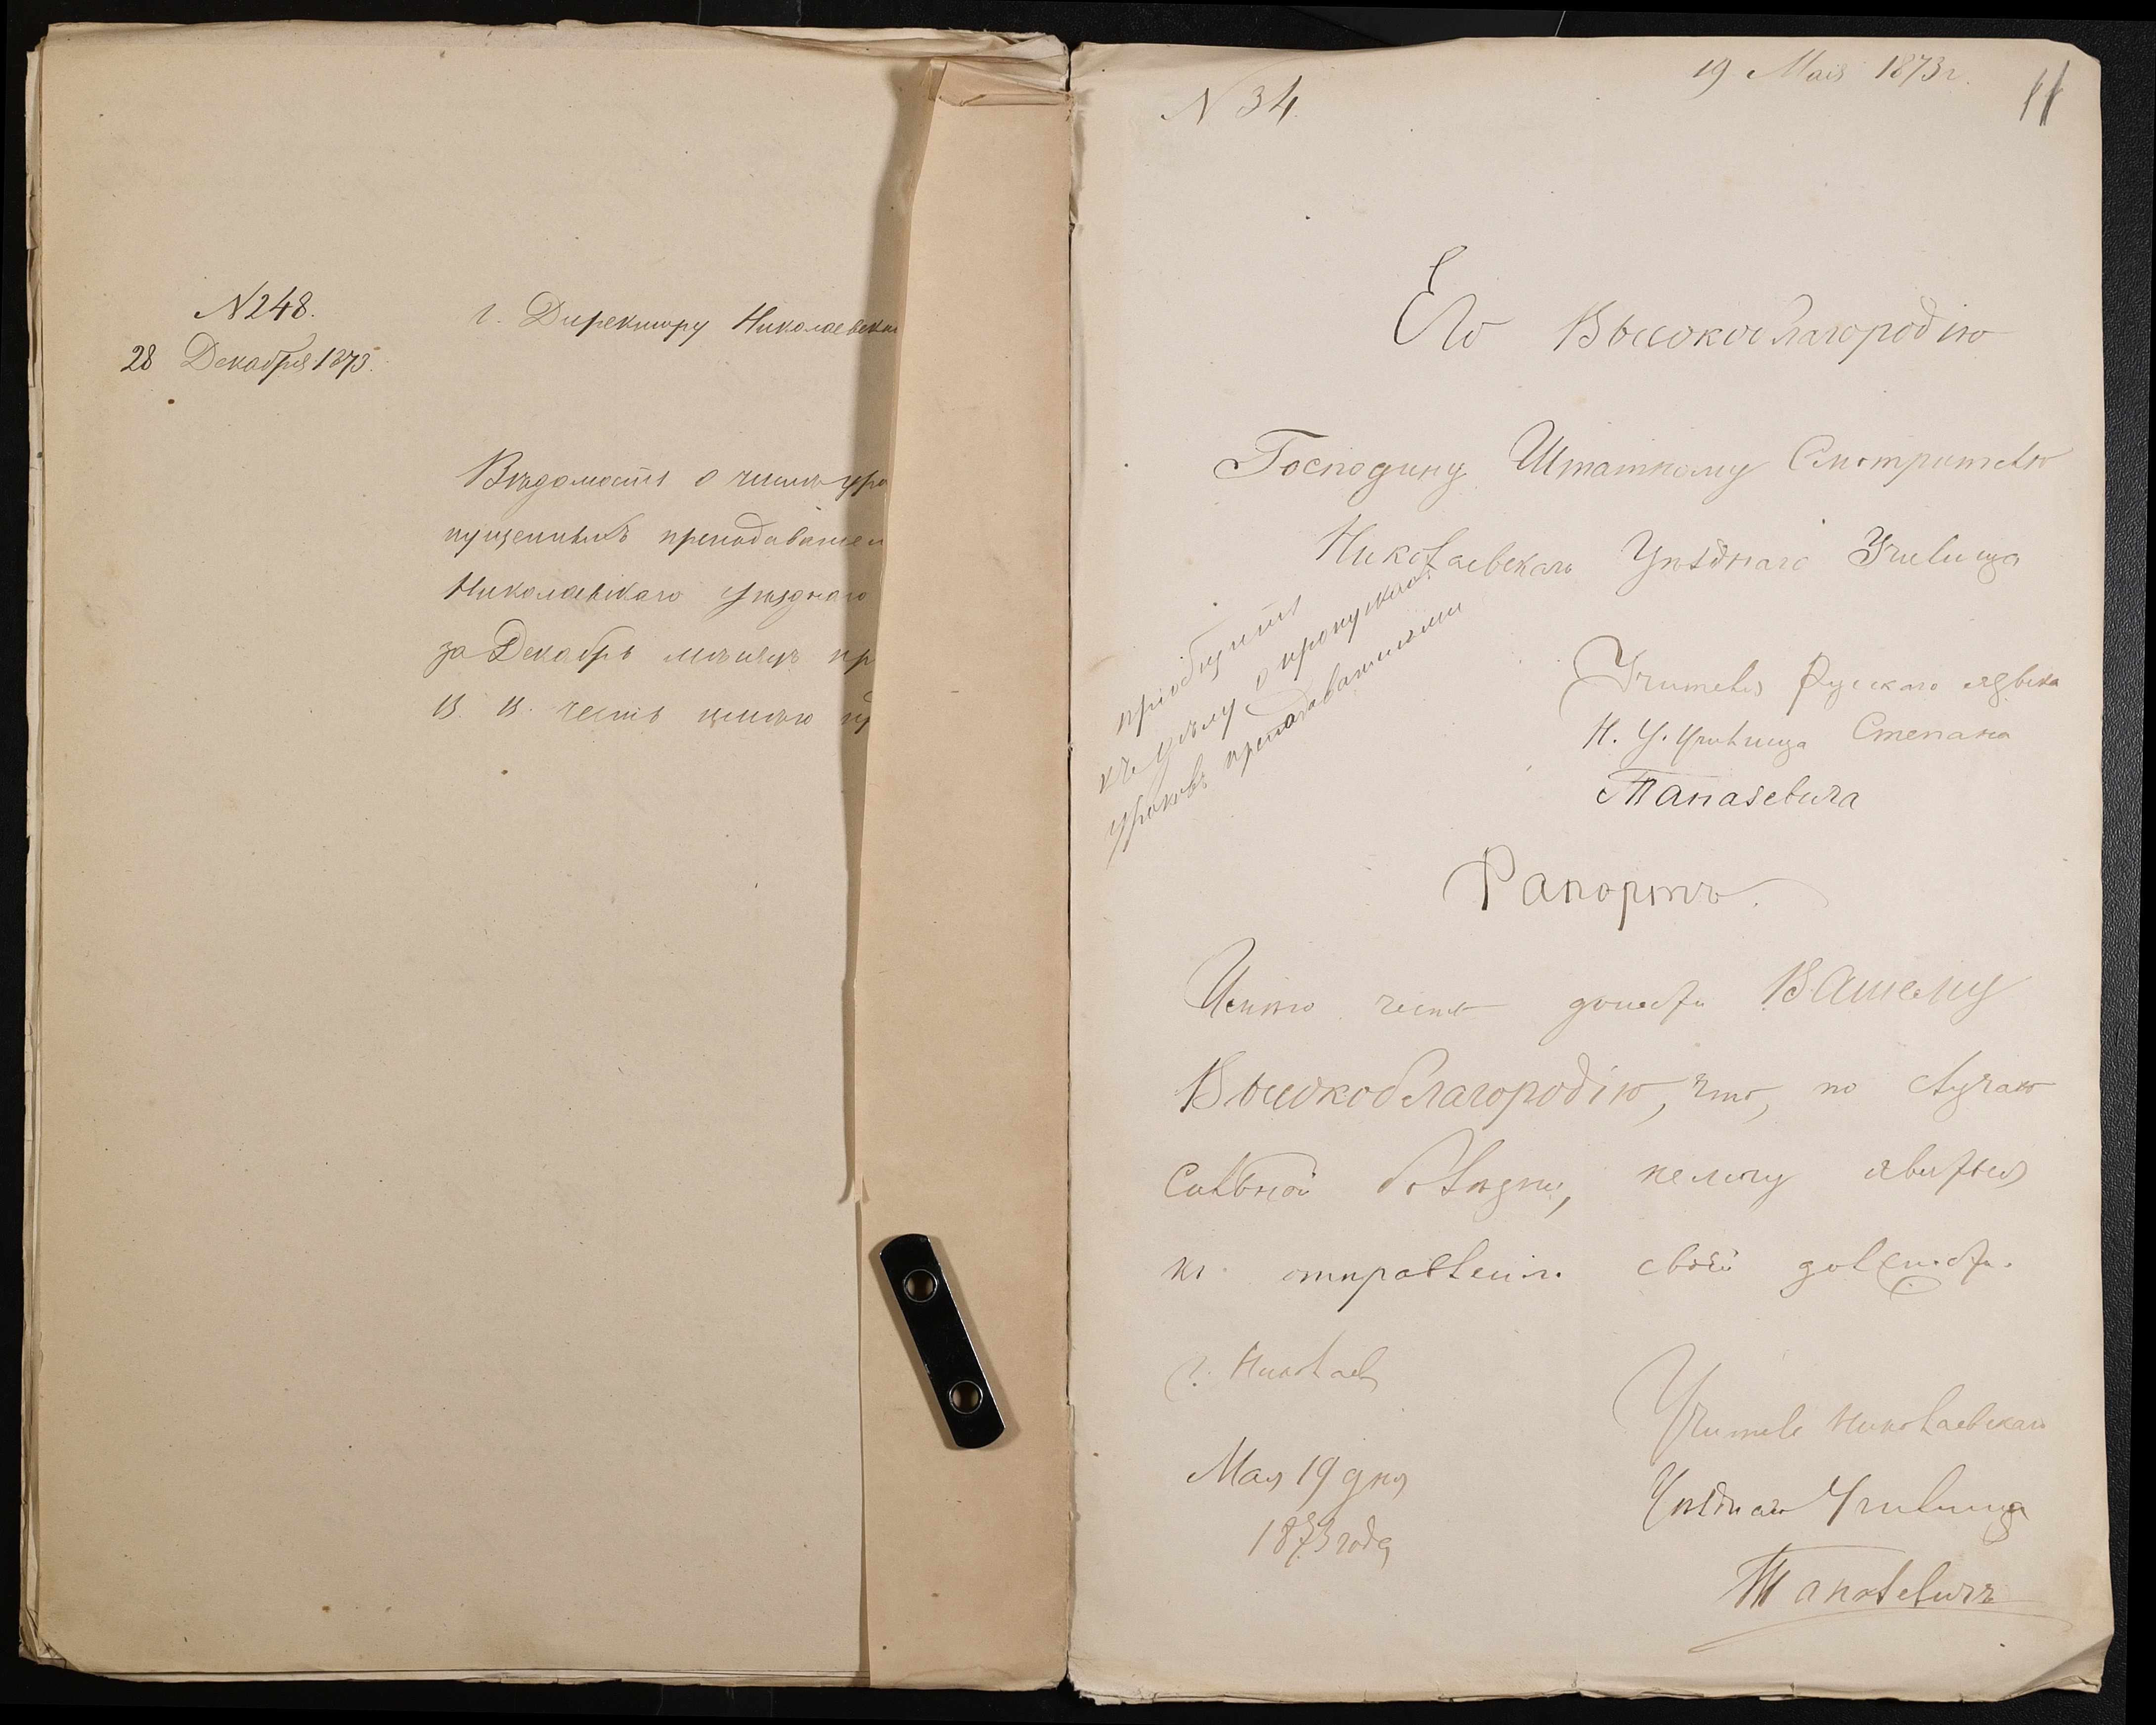 N 248.
28 Декабря 1873.
г. Директору Николаевск
Вѣдомость о числѣ уро
пущенныхъ преподавател
Николаевскаго Уѣзднаго
за Декабрь мѣсяцъ пр
В. В. честь имѣю пр
N 34.
19 Мая 1873 г.
11
Его Высокоблагородію
Господину Штатному Смотрителю
Николаевскаго Уѣзднаго Училища
пріобщить
къ дѣлу о пропускахъ
уроковъ преподавателями
Учителя Русскаго языка
Н. У. Училища Степана
Рапортъ.
Имѣю честь донести Вашему
Высокоблагородію, что, по случаю
сильной болѣзни, немогу явиться
къ отправленію своей должности.
г. Николаев
Мая 19 дня
1873 года
Учитель Николаевскаго
Уѣзднаго Училища